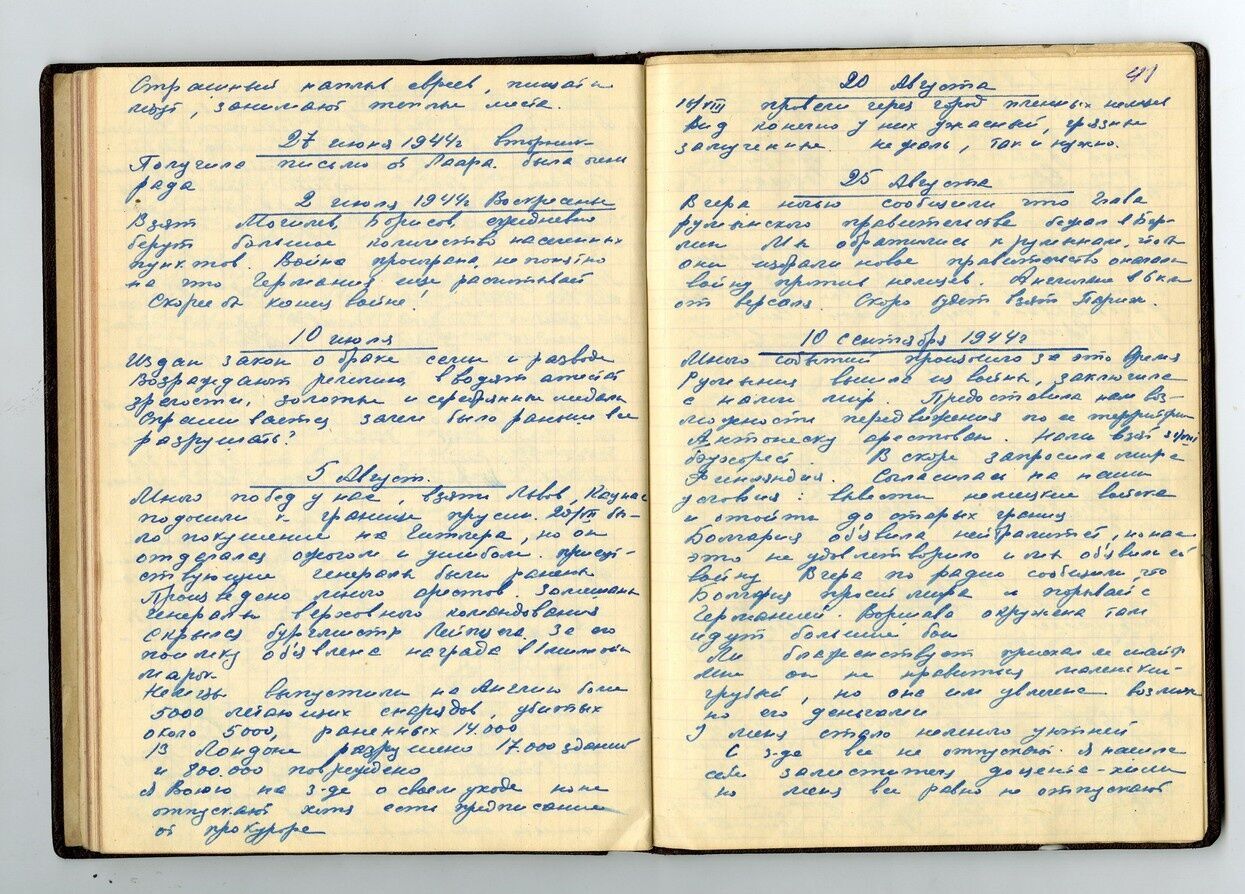 Страшный наплыв евреев, пищат и
лезут, занимают теплые места.
27 июня 1944г вторник
Получила письмо от Лаара. была очень
рада
2 июля 1944г Воскресенье
Взят Могилев, Борисов, ежедневно
берут большое количество населенных
пунктов. Война проиграна, не понятно
на что Германия еще расчитывает
Скорее бы конец войне!
10 июля
Издан закон о браке семьи и разводе
Возраждают религию, вводят аттестат
зрелости, золотые и серебрянные медали
Спрашивается зачем было раньше все
разрушать?
5 Август.
Много побед у нас, взяты Львов, Каунас
подошли к границе прусии. 20/VII бы-
ло покушение на Гитлера, но он
отделался ожогом и ушибом. присут-
ствующие генералы были ранены
Произведено много арестов. Замешаны
генералы верховного командования
скрылся бургомистр Лейпцега. За его
поимку об'явлена награда в 1 миллион
марок
Немцы выпустили на Англию более
5000 летающих снарядов, убитых
около 5000, раненных 14.000
В Лондоне разрушено 17.000 зданий
и 800.000 повреждено
Я Воюю на з-де о своем уходе но не
отпускают хотя есть предписание
от прокурора
41
20 Августа
16/VIII провели через город пленных немцев
Вид конечно у них ужасный, грязные
замученные. не жаль, так и нужно.
25 Августа
Вчера ночью сообщили что Глава
румынского правительства бежал в Бер-
лин Мы обратились к румынам, чтоб
они избрали новое правительство об'явили
войну против немцев. Англичане в 6 км
от версаля. Скоро будет взят Париж.
10 сентября 1944г
Много событий произошло за это время
Румыния вышла из войны, заключила
с нами мир. Предоставила нам воз-
можность передвижения по ее территории
Антонеску арестован. Нами взят 31/VIII
бухарест. В скоре запросила мира
Финляндия. Согласилась на наши
условия: вывести немецкие войска
и отойти до старых границ
Болгария об'явила нейтралитет, но нас
это не удовлетворило и мы об'явили ей
войну Вчера по радио сообщили, что
Болгария просит мира и порывает с
Германией. Варшава окружена там
идут большие бои
Ли блаженствует приехал ее майор
Мне он не нравиться маленький-
грубый, но она им увлечена возмож
но его деньгами
У меня стало немного уютней
С з-да все не отпускают. Я нашла
себе заместителя доцента-химика
но меня все равно не отпускают